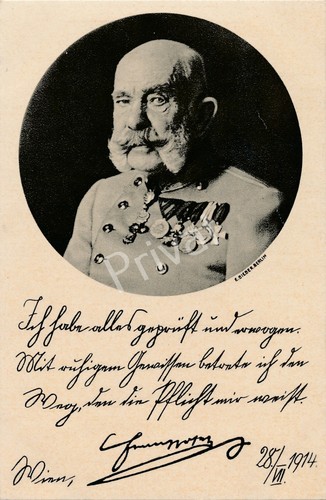 Private
E. BIEBER, BERLIN
Ich habe alles geprüft und erwogen.
Mit ruhigem Gewissen betrete ich den
Weg, den die Pflicht mir weist.
Franz Josef
Wien, 28/VII. 1914.